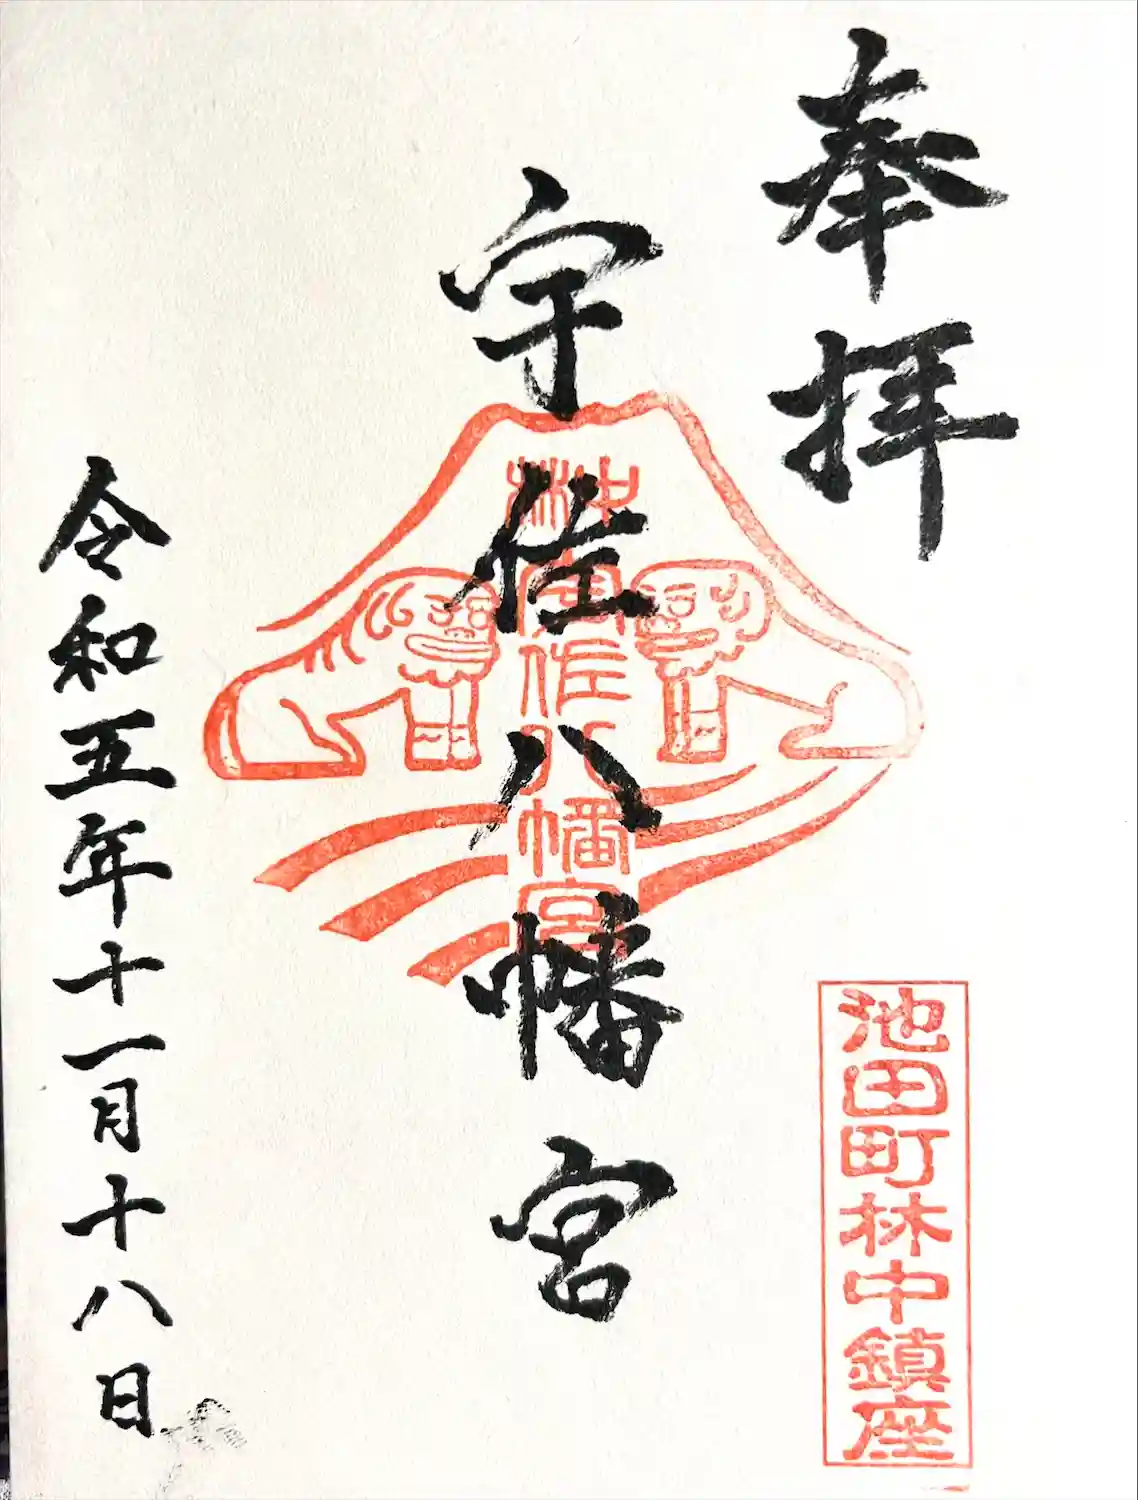 奉拝
池田町林中鎮座
宇佐八幡宮
林中
宇佐八幡宮
令和五年十一月十八日